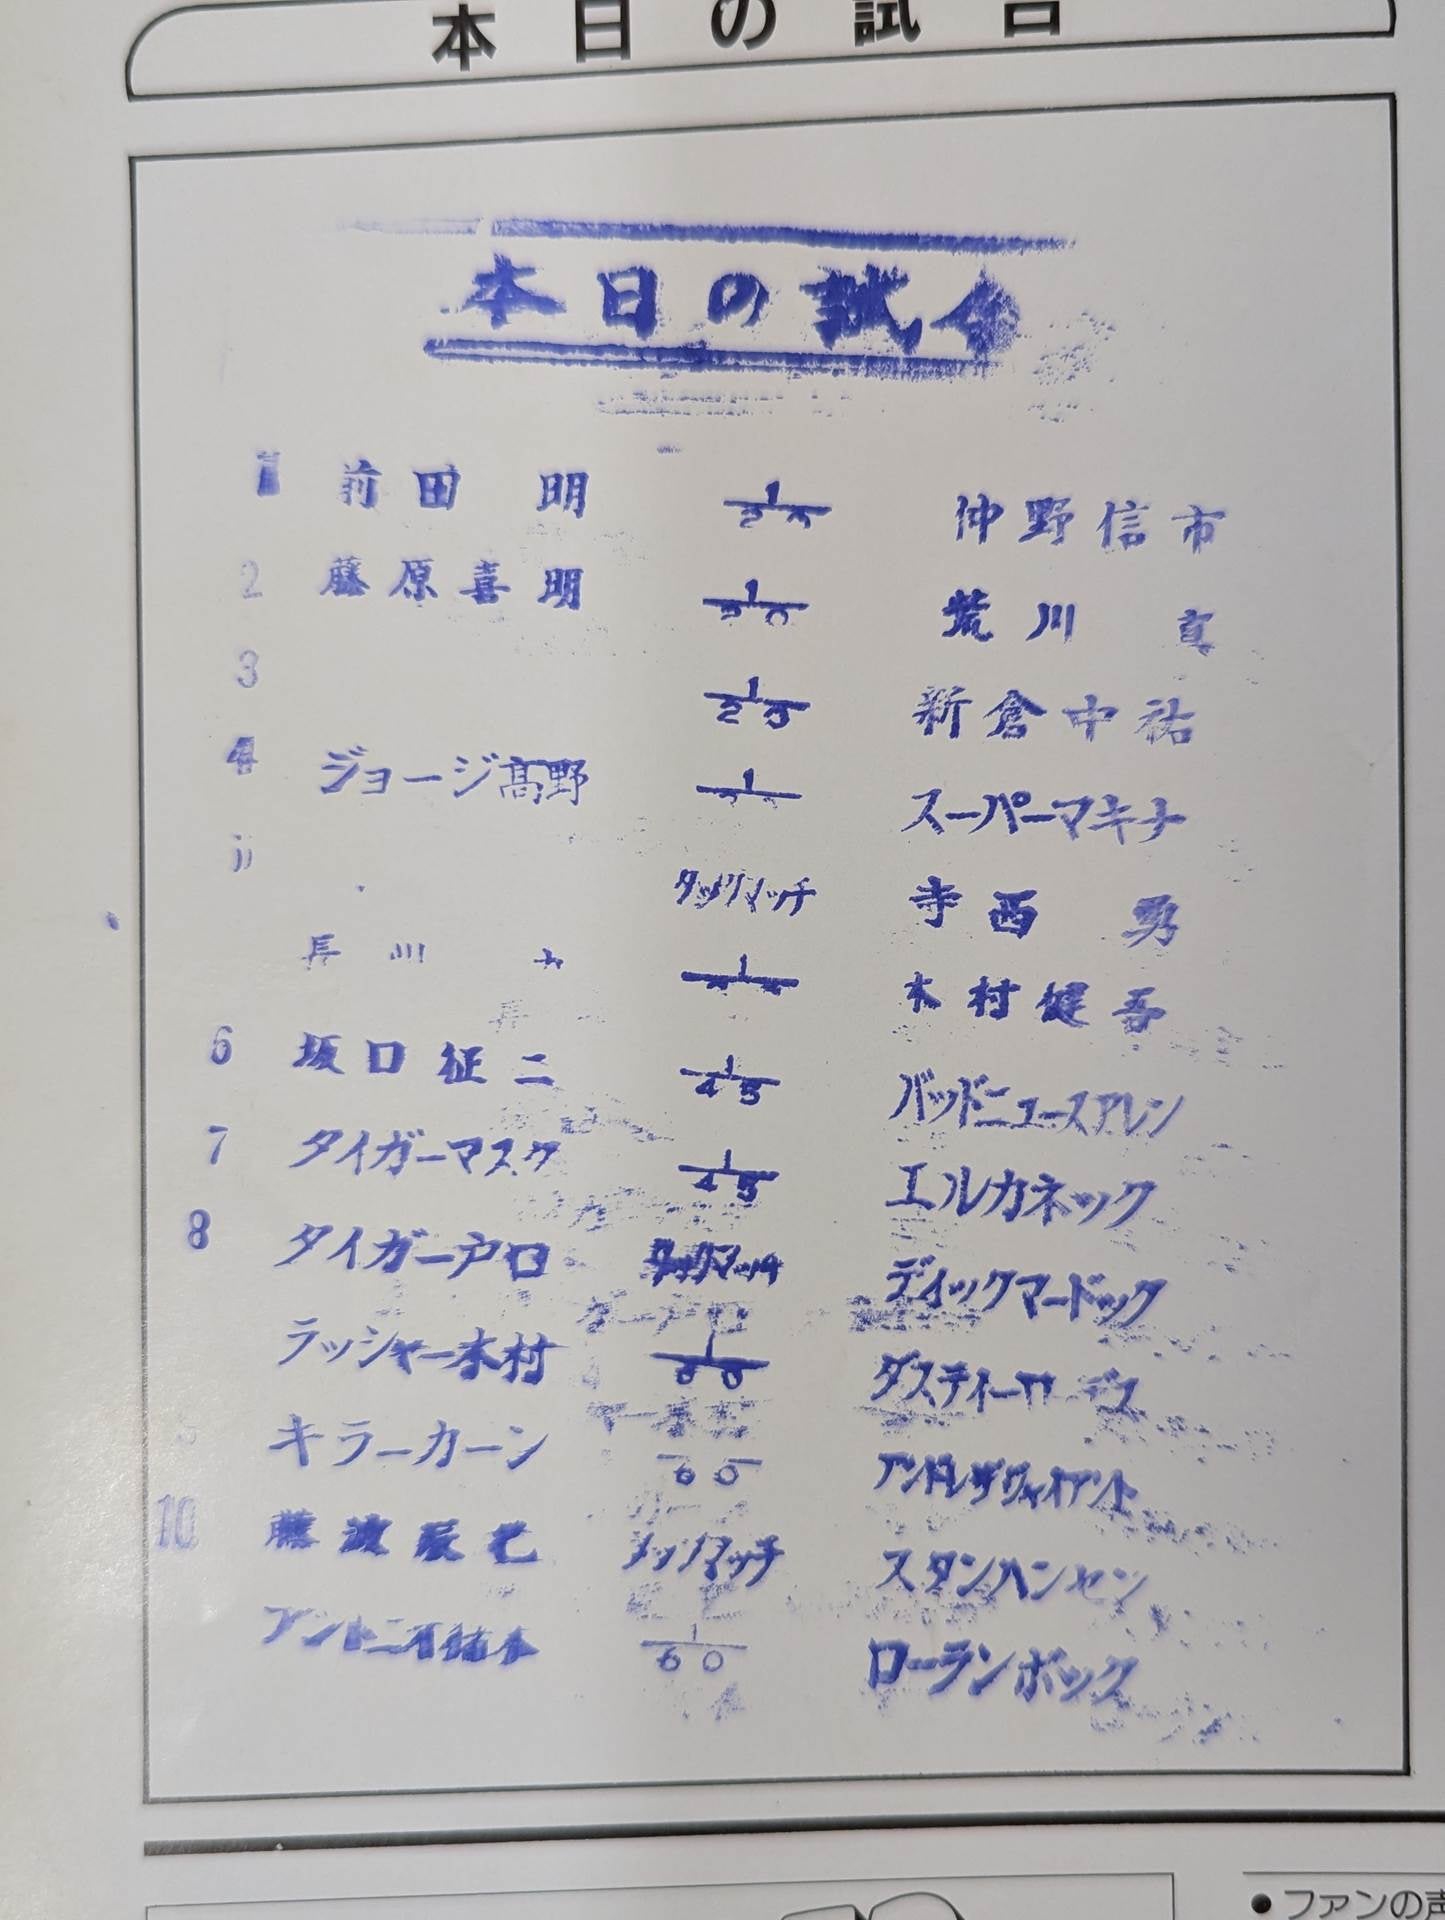 本日の試合
本日の試合
1 前田 明 1/20 仲野信市
2 藤原喜明 1/20 荒川 真
3 1/20 新倉史祐
4 ジョージ高野 1 スーパーマキナ
タッグマッチ 寺西 勇
長川 1 木村健吾
6 坂口征二 1/45 バッドニュースアレン
7 タイガーマスク 1/45 エルカネック
8 タイガー戸口 タッグマッチ ディックマードック
ラッシャー木村 1/60 ダスティーローデス
キラーカーン 60 アンドレザジャイアント
10 藤波辰巳 タッグマッチ スタンハンセン
アントニオ猪木 1/60 ローランボック
●ファンの声